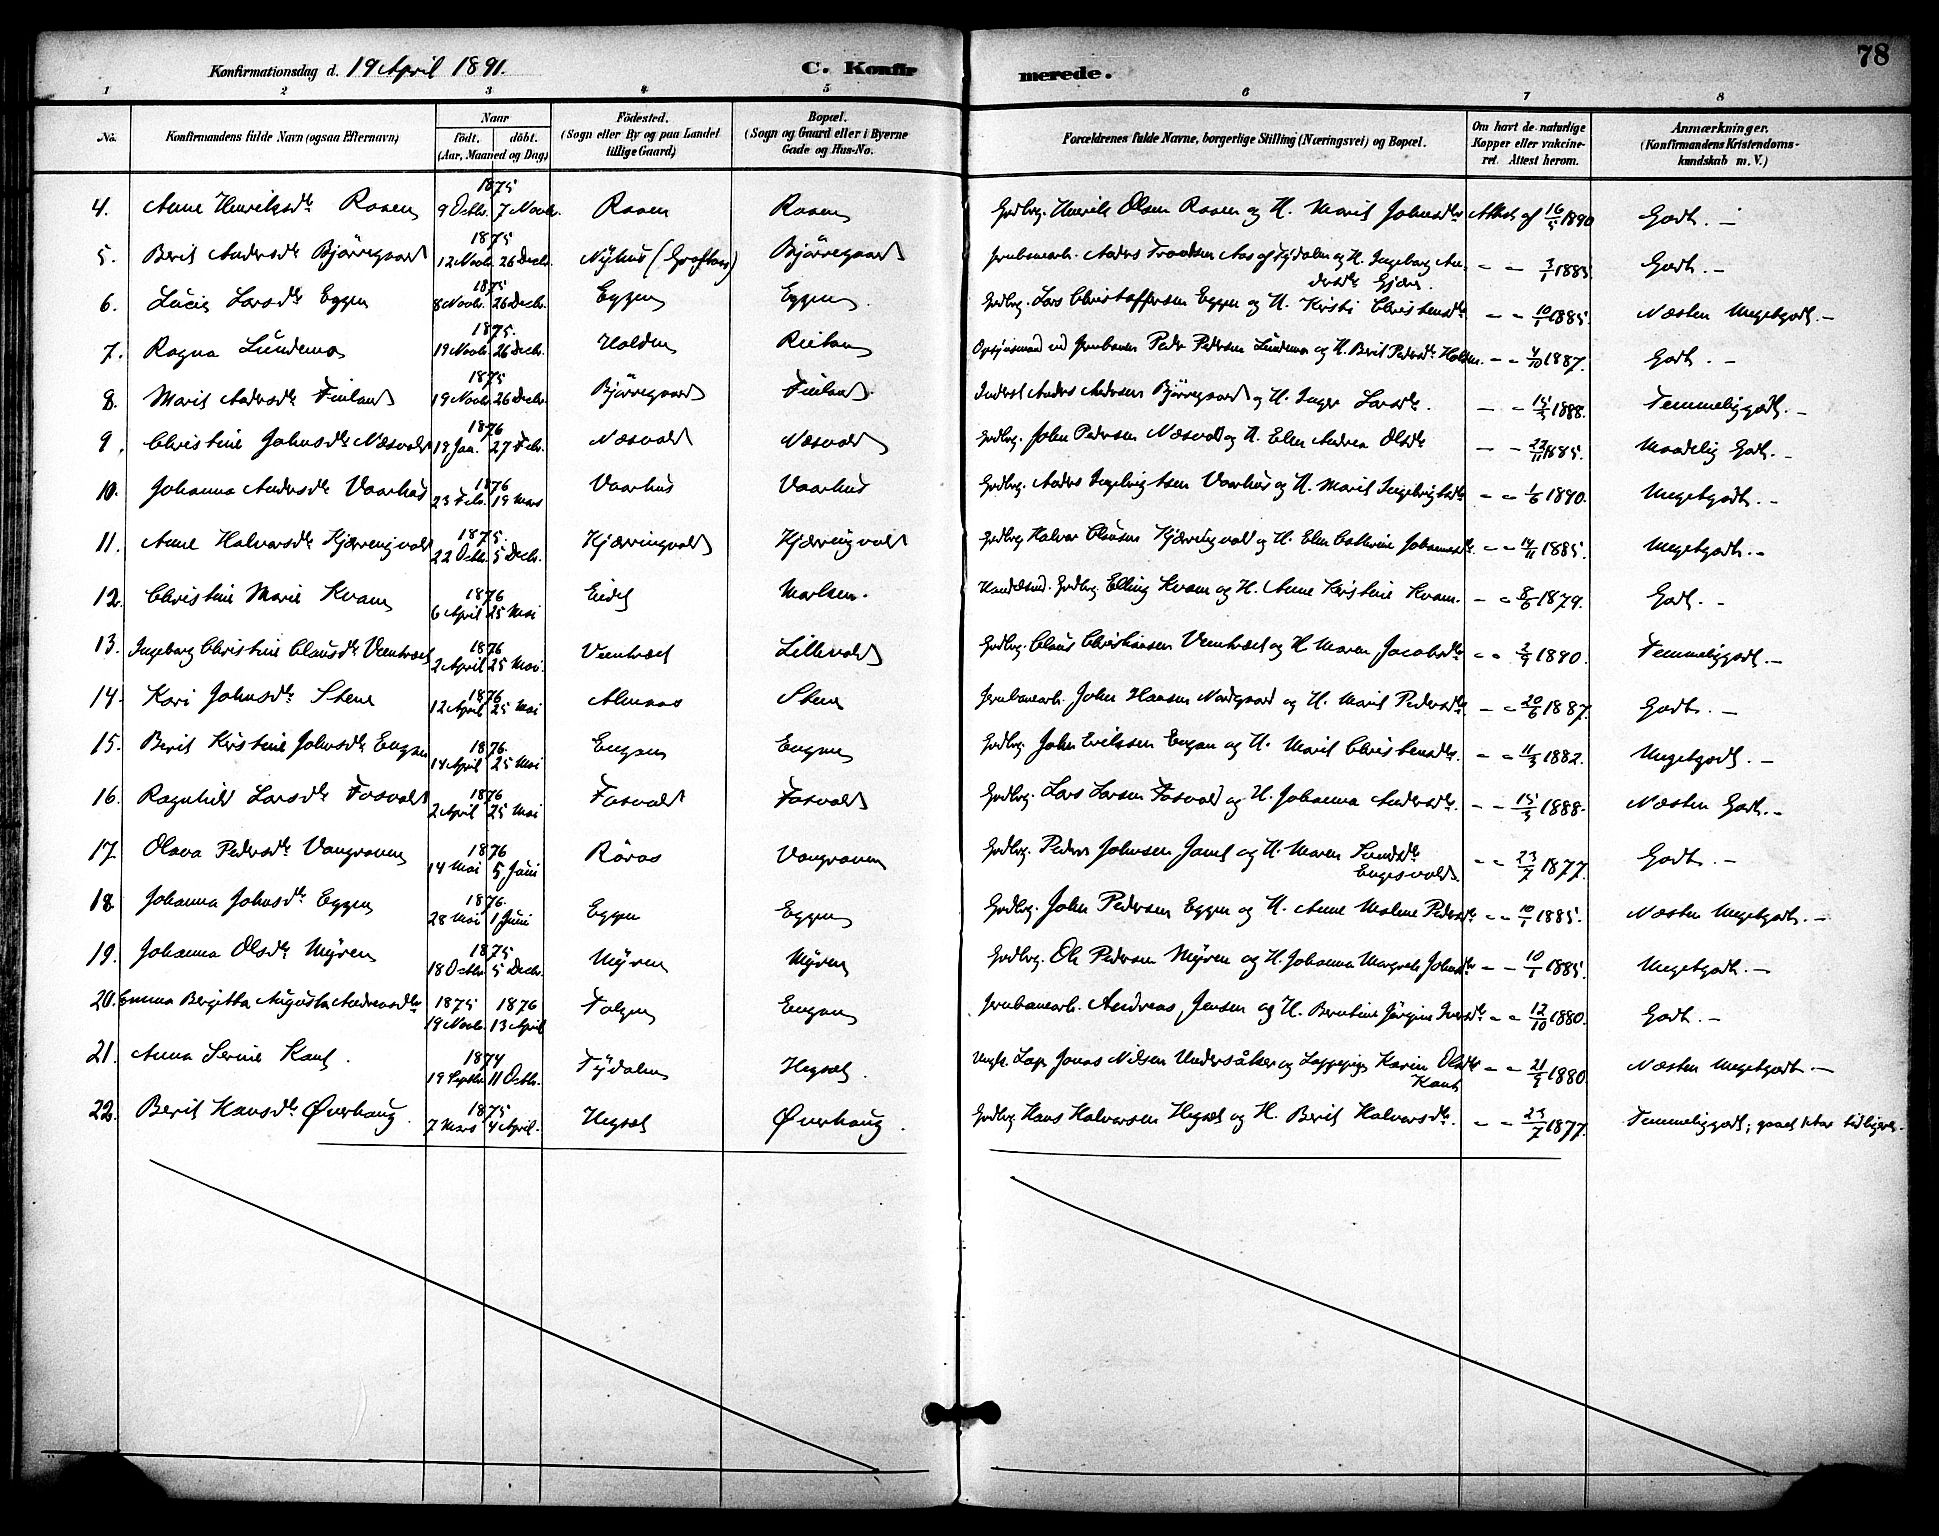 78
Konfirmationsdag d. 19 April 1891. C. Konfir merede.
1 2 3 4 5 6 7 8
No. Konfirmandens fulde Navn (ogsaa Efternavn) Naar födt. döbt. (Aar, Maaned og Dag) Födested. (Sogn eller By og paa Landet tillige Gaard) Bopæl. (Sogn og Gaard eller i Byerne Gade og Hus-No. Forældrenes fulde Navne, borgerlige Stilling (Næringsvei) og Bopæl. Om havt de naturlige Kopper eller vakcineret. Attest herom. Anmærkninger. (Konfirmandens Kristendomskundskab m. V.)
1875
4. Anne Henriksdtr Roaen 9 Octbr. 7 Novbr. Roaen Roaen Grdbrg. Henrik Olsen Roaen og H. Marit Johnsdtr Attest af 16/5 1890 Godt. –
1875
5. Berit Andersdtr Bjørregaard 12 Novbr. 26 Decbr. Nÿhus (Graftaas) Bjørregaard Jernbanearb. Anders Trondsen Aas af Tydalen og H. Ingeborg An-
dersdtr Gjære. – – 3/1 1885 Godt. –
1875
6. Lucie Larsdtr Eggen 8 Novbr. 26 Decbr. Eggen Eggen. Grdbrg. Lars Christoffersen Eggen og H. Kirsti Christensdtr – – 10/1 1885. Næsten Megetgodt. –
1875.
7. Ragna Lundemo 19 Novbr. 26 Decbr. Holden Rietan Opsynsmand ved Jernbanen Peder Pedersen Lundemo og H. Berit Pedersdtr Holden – – 4/10 1887. Godt. –
1875
8. Marit Andersdtr Finland 19 Novbr. 26 Decbr. Bjørregaard Finland. Inderst Anders Andersen Bjørregaard og H. Inger Larsdtr. – – 15/3 1888. Temmeliggodt. –
1876
9. Christine Johnsdtr Næsvold 19 Jan. 27 Febr. Næsvold Næsvold Grdbrg. John Pedersen Næsvold og H. Elen Andrea Olsdtr – – 22/11 1885. Maadelig Godt. –
1876
10. Johanna Andersdtr Vaarhus 23 Febr. 19 Mars Vaarhus Vaarhus Grdbrg. Anders Ingebrigtsen Vaarhus og H. Marit Ingebrigtsdtr – – 1/6 1890. Megetgodt. –
1875.
11. Anne Halvorsdtr Kjærringvold 22 Octbr. 5 Decbr. Kjærringvold Kjærringvold Grdbrg Halvor Clausen Kjærringvold og H. Elen Cathrine Johannesdtr – – 14/11 1885. Megetgodt. –
1876
12. Christine Marie Kvam 6 April 25 Mai Eidet Morlsen. Handelsmd. Grdbrg. Elling Kvam og H. Anne Kirstine Kvam. – – 8/6 1879. Godt. –
1876
13. Ingeborg Christine Clausdtr Veentræet 2 April 25 Mai Veentræet Lillevold Grdbrg. Claus Christiansen Veentræet og H Maren Jacobsdtr – – 2/9 1890. Temmeliggodt. –
1876
14. Kari Johnsdtr Stene 12 April 25 Mai Almaas Stene Jernbanearb. John Hansen Nordgaard og H. Marit Pedersdtr – – 20/6 1887. Godt. –
1876.
15. Berit Kirstine Johnsdtr Engan 14 April 25 Mai Engan Engan Grdbrg. John Eriksen Engan og H. Marit Christensdtr. – – 11/3 1882. Megetgodt. –
1876
16. Ragnhild Larsdtr Fosvold 2 April 25 Mai Fosvold Fosvold Grdbrg. Lars Larsen Fosvold og H. Johanna Andersdtr. – – 15/3 1888. Næsten Godt. –
1876
17. Olava Pedersdtr Vongraven 14 Mai 5 Juni Røros Vongraven Grdbrg. Peder Johnsen Jamt og H. Maren
Engesvold – – 23/7 1877. Godt. –
1876.
18. Johanna Johnsdtr Eggen 28 Mai 1 Juni Eggen Eggen Grdbrg. John Pedersen Eggen og H. Anne Malene Pedersdtr – – 10/1 1885. Næsten Megetgodt. –
1875
19. Johanna Olsdtr Mÿren 18 Octbr. 5 Decbr. Mÿren Mÿren Grdbrg. Ole Pedersen Mÿren og H. Johanna Margrete Johnsdtr – – 10/1 1885. Megetgodt. –
1875 1876
20. Emma Bergitta Augusta Andreasdtr 19 Novbr. 13 April Tolgen Engan Jernbanearb. Andreas Jensen og H. Berntine Jørgine Iversdtr – – 12/10 1880. Godt. –
1874
21. Anna Serine Kant. 19 Septbr. 11 Octbr. Tÿdalen Hegset. Ungk. Lap Jonas Nilsen Undersåker og Lappepige Karin Olsdtr
Kant – – 21/9 1880. Næsten Megetgodt. –
1875
22. Berit Hansdtr Øverhaug. 7 Mars 4 April. Hegset Øverhaug. Grdbrg. Hans Halvorsen Hegset og H. Berit Halvorsdtr. – – 23/7 1877. Temmeliggodt;